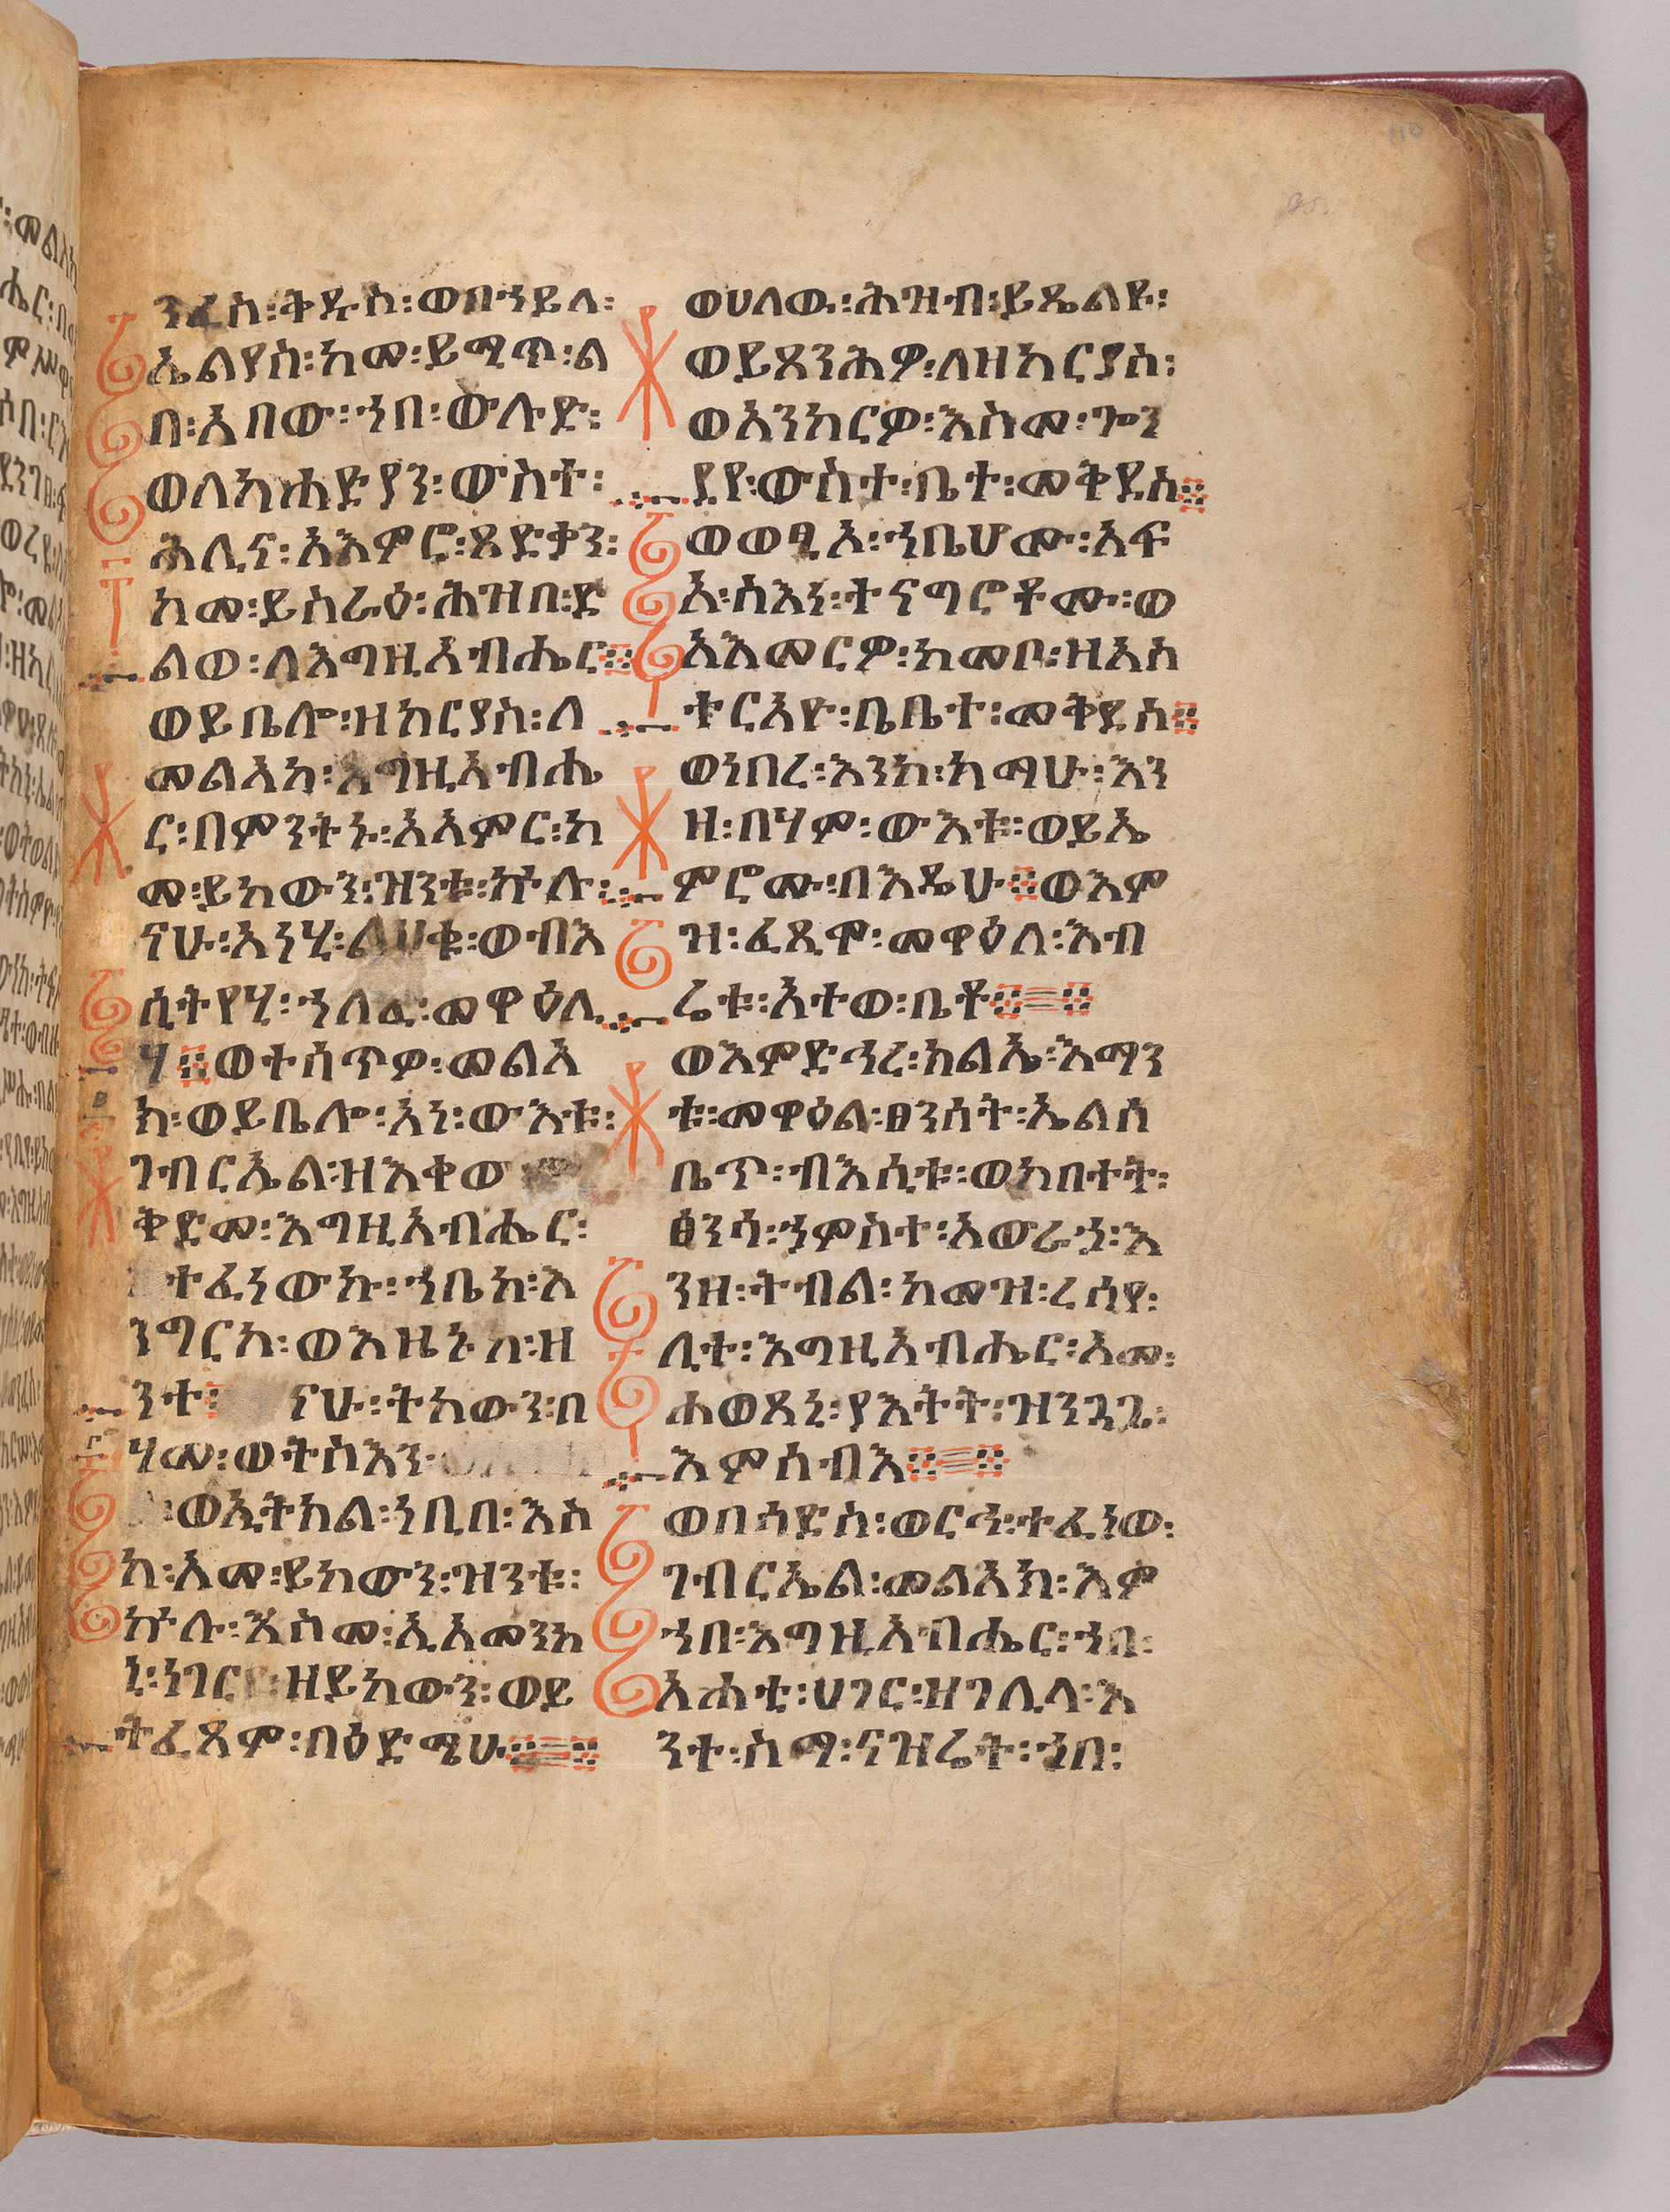 ንፈስ፡ቅዱስ፡ወበኀይለ፡
ኤልያስ፡ከመ፡ይሚጥ፡ል
በ፡አበው፡ኀበ፡ውሉድ፡
ወለከሐድያን፡ውስተ፡
ሕሊና፡አእምሮ፡ጻድቃን፡
ከመ፡ይስራዕ፡ሕዝበ፡ድ
ልወ፡ለእግዚአብሔር፨
ወይቤሎ፡ዘካርያስ፡ለ
መልአከ፡እግዚአብሔ
ር፡በምንትኑ፡አአምር፡ከ
መ፡ይከውን፡ዝንቱ፡ኵሉ፡
ናሁ፡አነሂ፡ልህቁ፡ወብእ
ሲትየሂ፡ኀለፈ፡መዋዕሊ
ሃ፨ወተሰጥዎ፡መልአ
ክ፡ወይቤሎ፡አነ፡ውእቱ፡
ገብርኤል፡ዘእቀው
ቅድመ፡እግዚአብሔር፡
ተፈነውኩ፡ኀቤከ፡እ
ንግርከ፡ወእዜኑ፡ለ፡ዘ
ንተ፡ ናሁ፡ትከውን፡በ
ሃመ፡ወትስእን
፡ወኢትክል፡ነቢበ፡እስ
ከ፡አመ፡ይከውን፡ዝንቱ፡
ኵሉ፡እስመ፡ኢአመንከ
ኒ፡ነገር ፡ዘይከውን፡ወይ
ትፈጸም፡በዕድሜሁ፨
ወሀለው፡ሕዝብ፡ይጼልዩ፡
ወይጸንሕዎ፡ለዘካርያስ፡
ወአንከርዎ፡እስመ፡ጐን
ደየ፡ውስተ፡ቤተ፡መቅደስ፨
ወወፂአ፡ኀቤሆሙ፡አፍ
አ፡ስእነ፡ተናግሮቶሙ፡ወ
አእመርዎ፡ከመቦ፡ዘአስ
ቱርእዮ፡በቤተ፡መቅደስ፨
ወነበረ፡እንከ፡ከማሁ፡እን
ዘ፡በሃም፡ውእቱ፡ወይኤ
ምሮሙ፡በእዴሁ፨ወእም
ዝ፡ፈጺሞ፡መዋዕለ፡እብ
ሬቱ፡አተወ፡ቤቶ፨
ወእምድኅረ፡ክልኤ፡እማን
ቱ፡መዋዕል፡ፀንሰት፡ኤልሳ
ቤጥ፡ብእሲቱ፡ወከበተት፡
ፅንሳ፡ኀምስተ፡አውራኀ፡እ
ንዘ፡ትብል፡ከመዝ፡ረሰየ፡
ሊተ፡እግዚአብሔር፡አመ፡
ሐወጸኒ፡ያእትት፡ዝንጓጔ፡
እምሰብእ፨
ወበሳድስ፡ወርኅ፡ተፈነወ፡
ገብርኤል፡መልአክ፡እም
ኀበ፡እግዚአብሔር፡ኀበ፡
አሐቲ፡ሀገር፡ዘገሊላ፡እ
ንተ፡ስማ፡ናዝሬት፡ኀበ፡